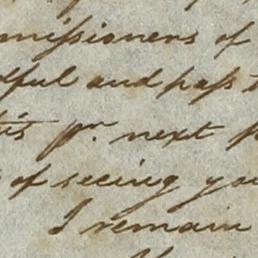 missioners of
dful and pass t
this pr. next p
of seeing you
I remain